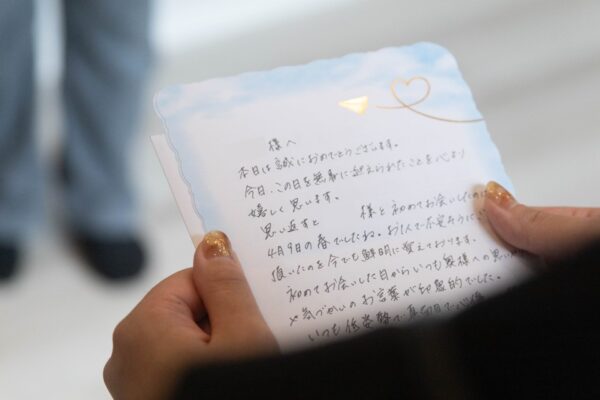 様へ
本日は誠におめでとうございます。
今日、この日を無事に迎えられたことを心より
嬉しく思います。
思い返すと 様と初めてお会いしたのは
4月9日の春でしたね。お1人で不安そうに
頂いたのを今でも鮮明に覚えております。
初めてお会いした日からいつも奥様への思い
や気づかいのお言葉が印象的でした。
いつも低姿勢で真面目で